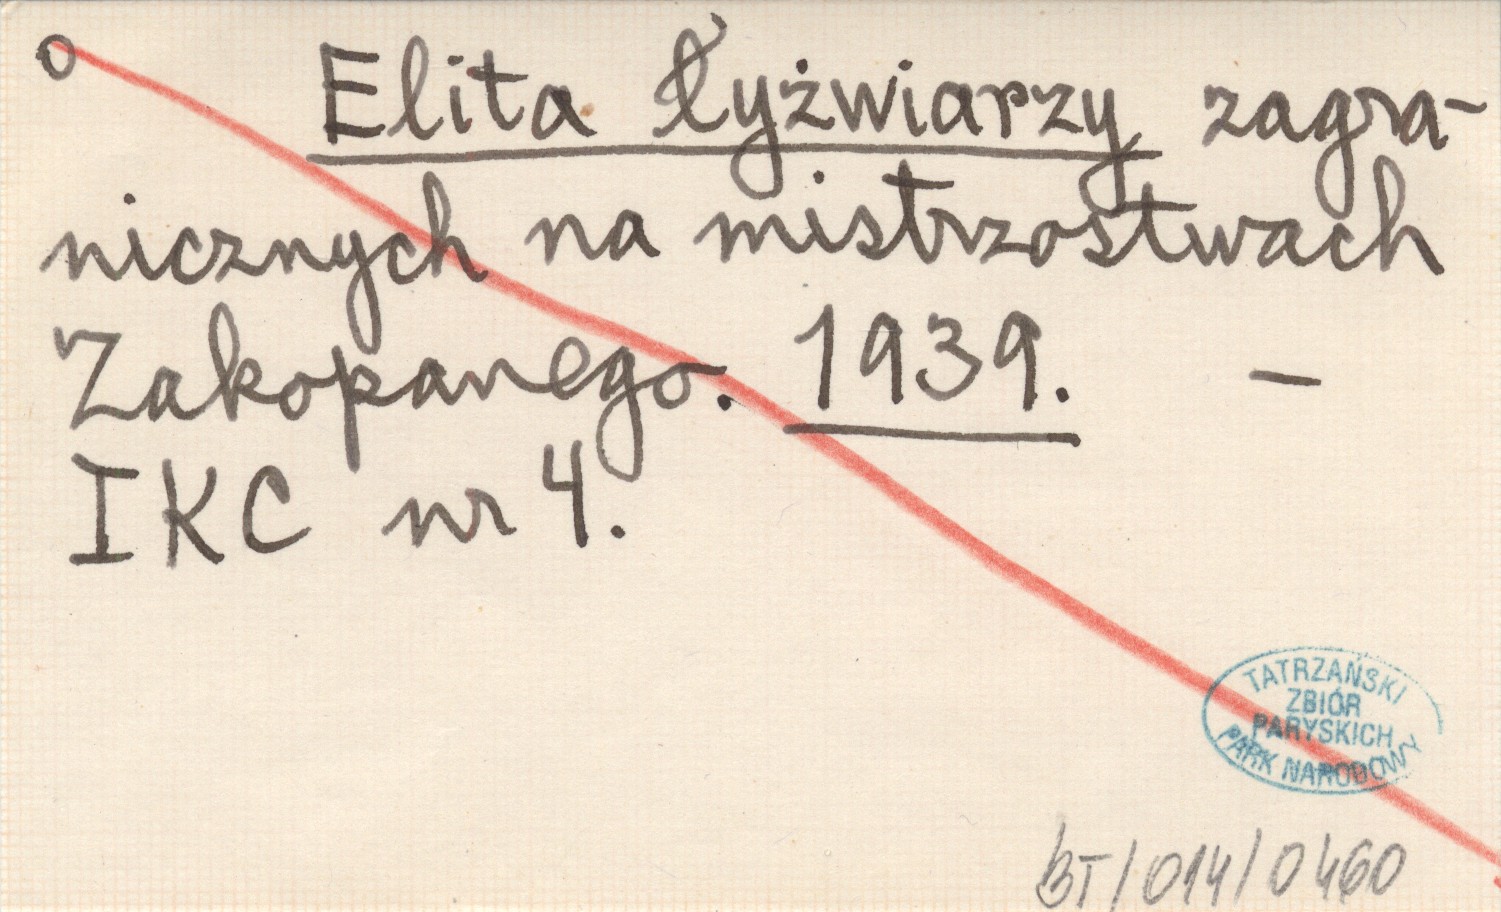 o Elita łyżwiarzy zagra-
nicznych na mistrzostwach
Zakopanego. 1939. —
IKC nr 4.
TATRZAŃSKI
ZBIÓR
PARYSKICH
PARK NARODOWY
BT/014/0460